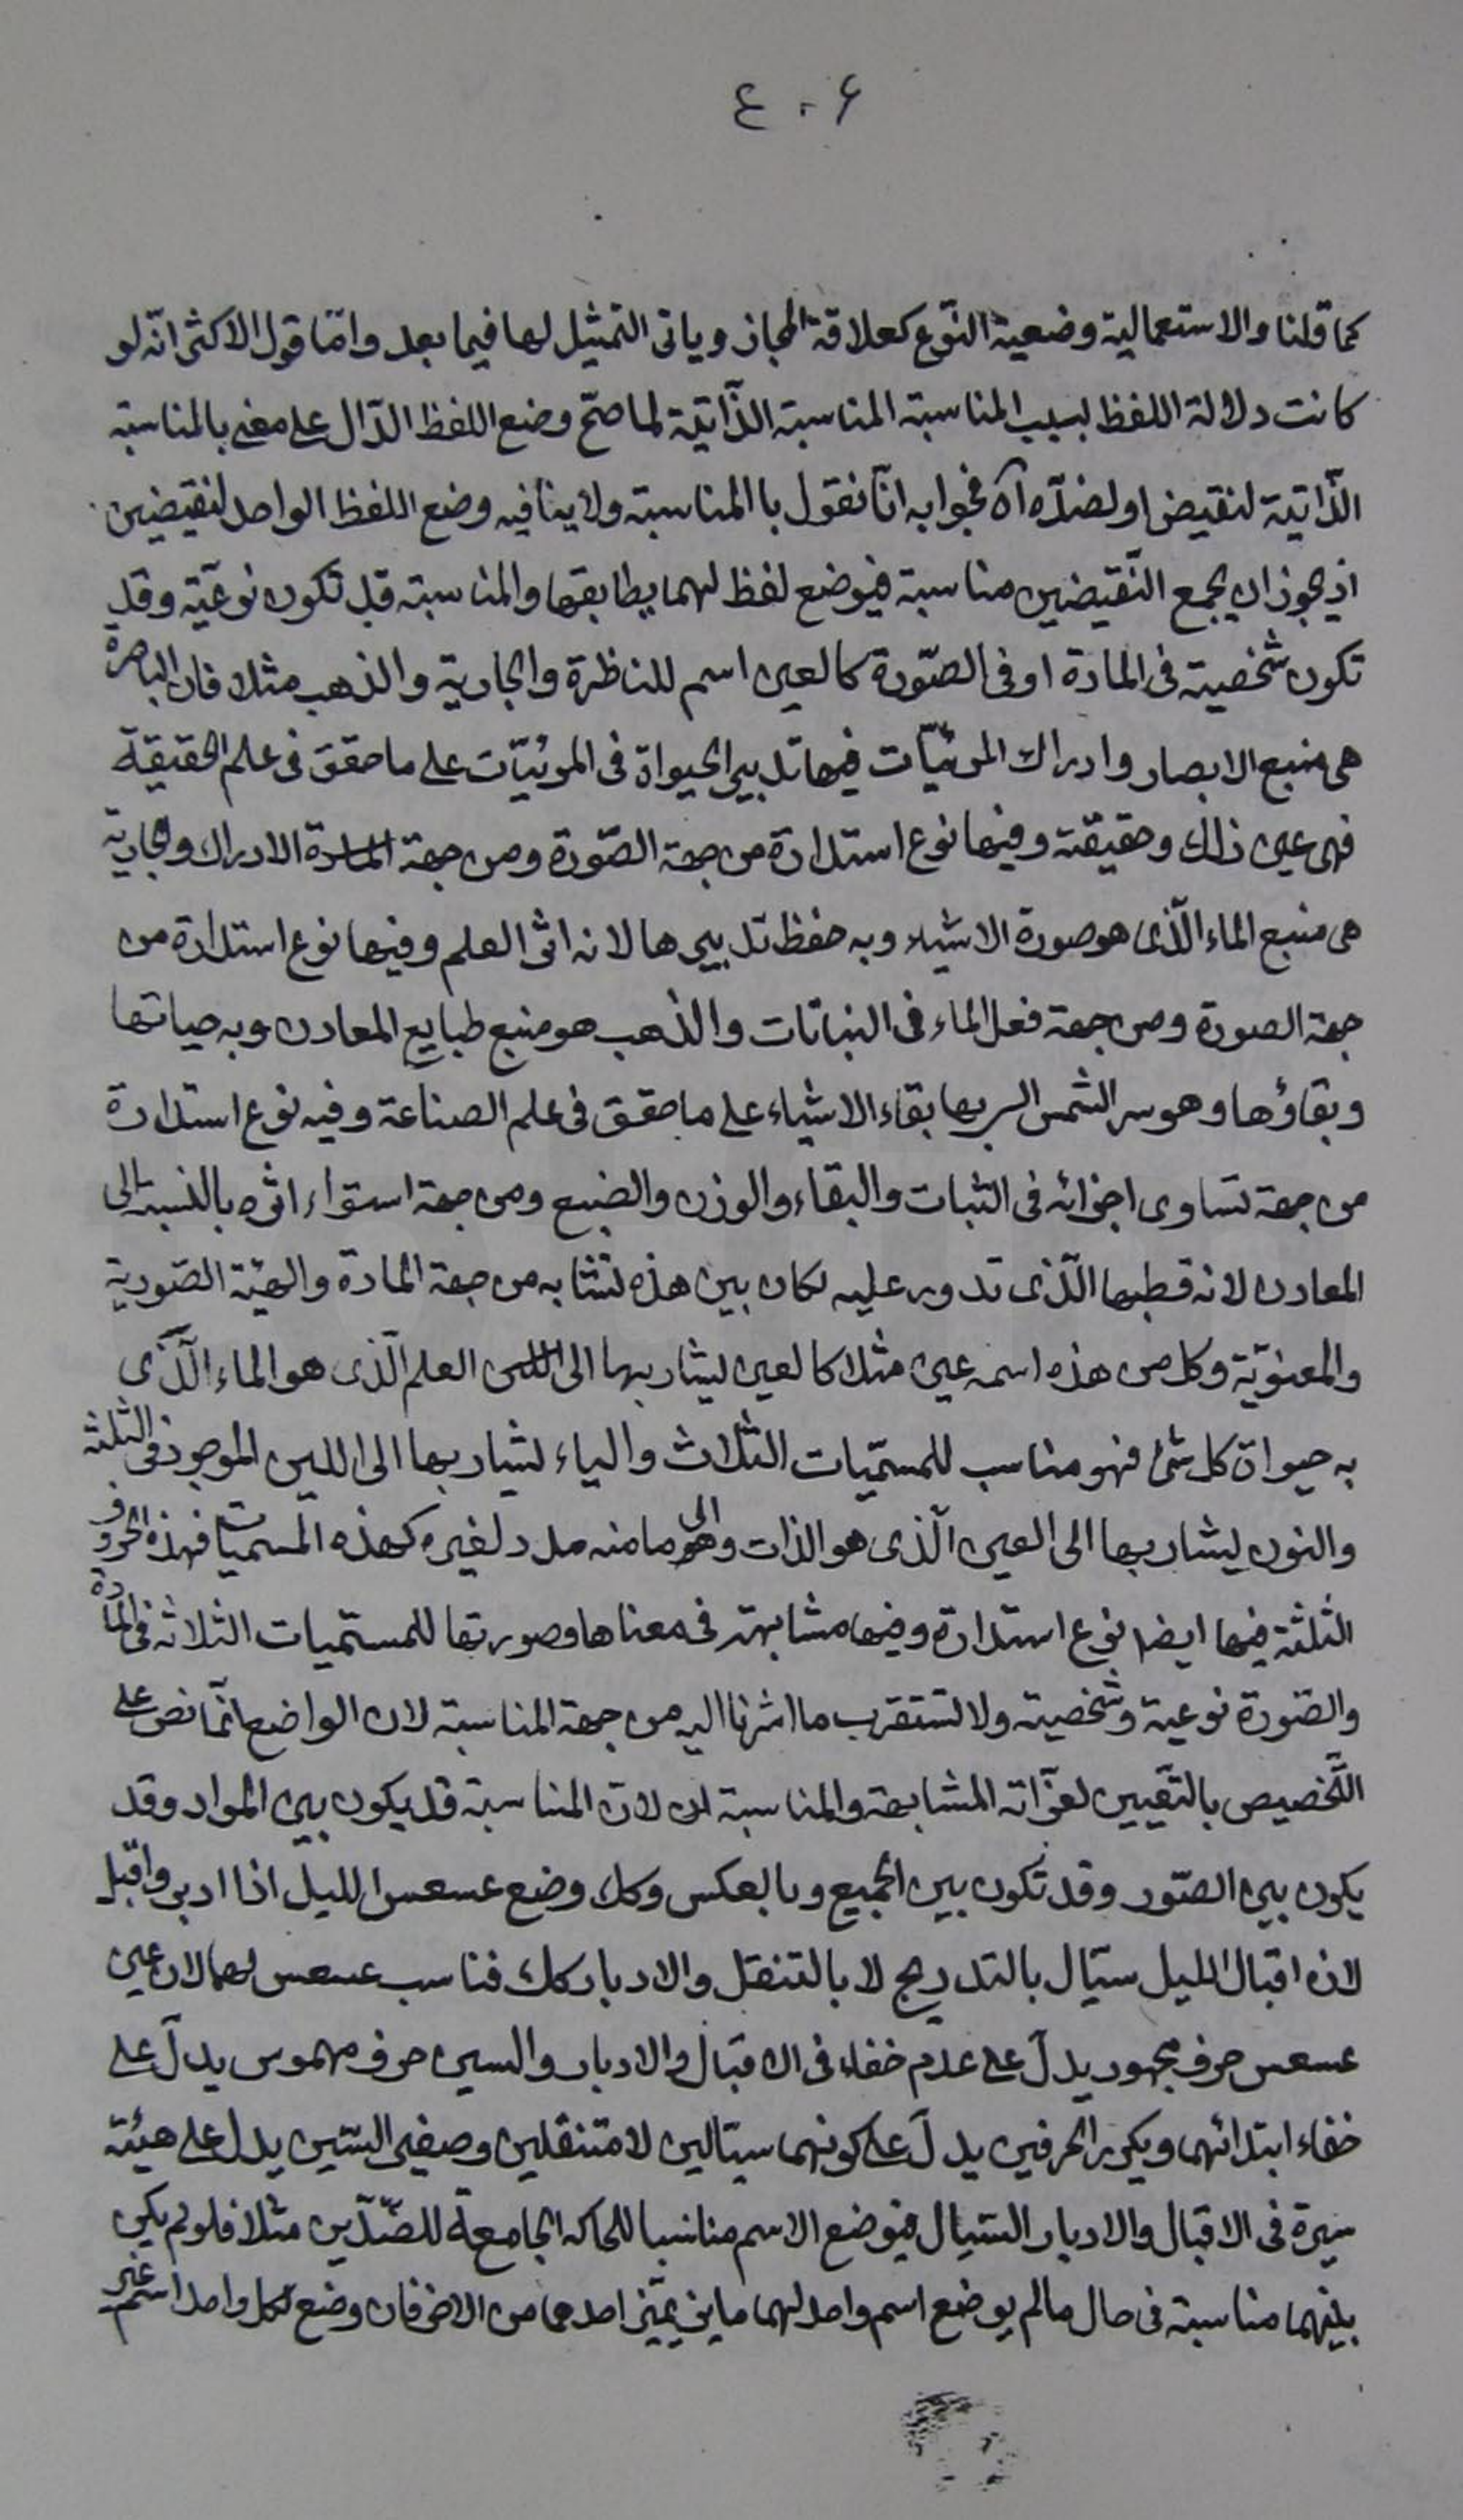 ٤٠۶
كما قلنا والاستعمالية وضعية النّوع كعلاقة المجاز وياتى التمثيل لها فيما بعد وامّا قول الاكثر انّه لو
كانت دلالة اللفظ لسبب المناسبة المناسبة الذّاتيّة لما صحّ وضع اللفظ الدّال على معنى بالمناسبة
الذّاتية لنقيض او لضدّه آه فجوابه انّا نقول بالمناسبة ولا ينافيه وضع اللفظ الواحد لنقيضين
اذ يجوز ان يجمع النّقيضين مناسبة فيوضع لفظ لهما يطابقها والمناسبة قد تكون نوعيّة وقد
تكون شخصية فى المادة او فى الصّورة كالعين اسم للناظرة والجارية والذهب مثلا فان الباصرة
هى منبع الابصار وادراك المرئيّات فيها تدبير الحيواة فى المرئيّات على ما حقق فى علم الحقيقة
فهى عين ذلك وحقيقته وفيها نوع استدارة من جهة الصّورة ومن جهة المادة الادراك والجارية
هى منبع الماء الّذى هو صورة الاشياء وبه حفظ تدبيرها لانه اثر العلم وفيها نوع استدارة من
جهة الصورة ومن جهة فعل الماء فى النباتات والذهب هو منبع طبايع المعادن وبه حياتها
وبقاؤها وهو سر الشمس الـ بها بقاء الاشياء على ما حقق فى علم الصناعة وفيه نوع استدارة
من جهة تساوى اجزائه فى الثبات والبقاء والوزن والصبغ ومن جهة استواء اثره بالنسبة الى
المعادن لانه قطبها الّذى تدور عليه لكان بين هذه لتشابه من جهة المادة والهيئة الصّورية
والمعنويّة وكل من هذه اسمه عين مثلا كالعين ليشار بها الى العلم الّذى هو الماء الّذى
به حيواة كل شئ فهو مناسب للمسمّيات الثلاث والياء لتشار بها الى اللين الموجود فى الثلثة
والنون ليشار بها الى العين الّذى هو الذات والى ما منه مدد لغيره كهذه المسميات فهذه الحروف
الثلثة فيها ايضا نوع استدارة وفيها مشابهة فى معناها وصورتها للمسمّيات الثلاثه فى المادّة
والصّورة نوعية وشخصية ولا تستغرب ما اشرنا اليه من جهة المناسبة لان الواضع انّما نص على
التّخصيص بالتّعيين لغرابة المشابهة والمناسبة لان المناسبة قد يكون بين المواد وقد
يكون بين الصّور وقد تكون بين الجميع وبالعكس وكك وضع عسعس الليل اذا ادبر واقبل
لان اقبال الليل سيّال بالتدريج لا بالتنقل والادبار كك فناسب عسعس لهما لان عين
عسعس حرف مجهور يدلّ على عدم خفاء فى الاقبال والادبار والسين حرف مهموس يدلّ على
خفاء ابتدائهما ويكرر الحرفين يدلّ على كونهما سيّالين لا متنقلين وصفير السّين يدل على هيئة
سيرة فى الاقبال والادبار السّيال فيوضع الاسم مناسبا للحاله الجامعة للضّدّين مثلا فلو لم يكن
بينهما مناسبة فى حال ما لم يوضع اسم واحد لهما يميّز احدهما من الاخر فان وضع لكل واحد اسم غير